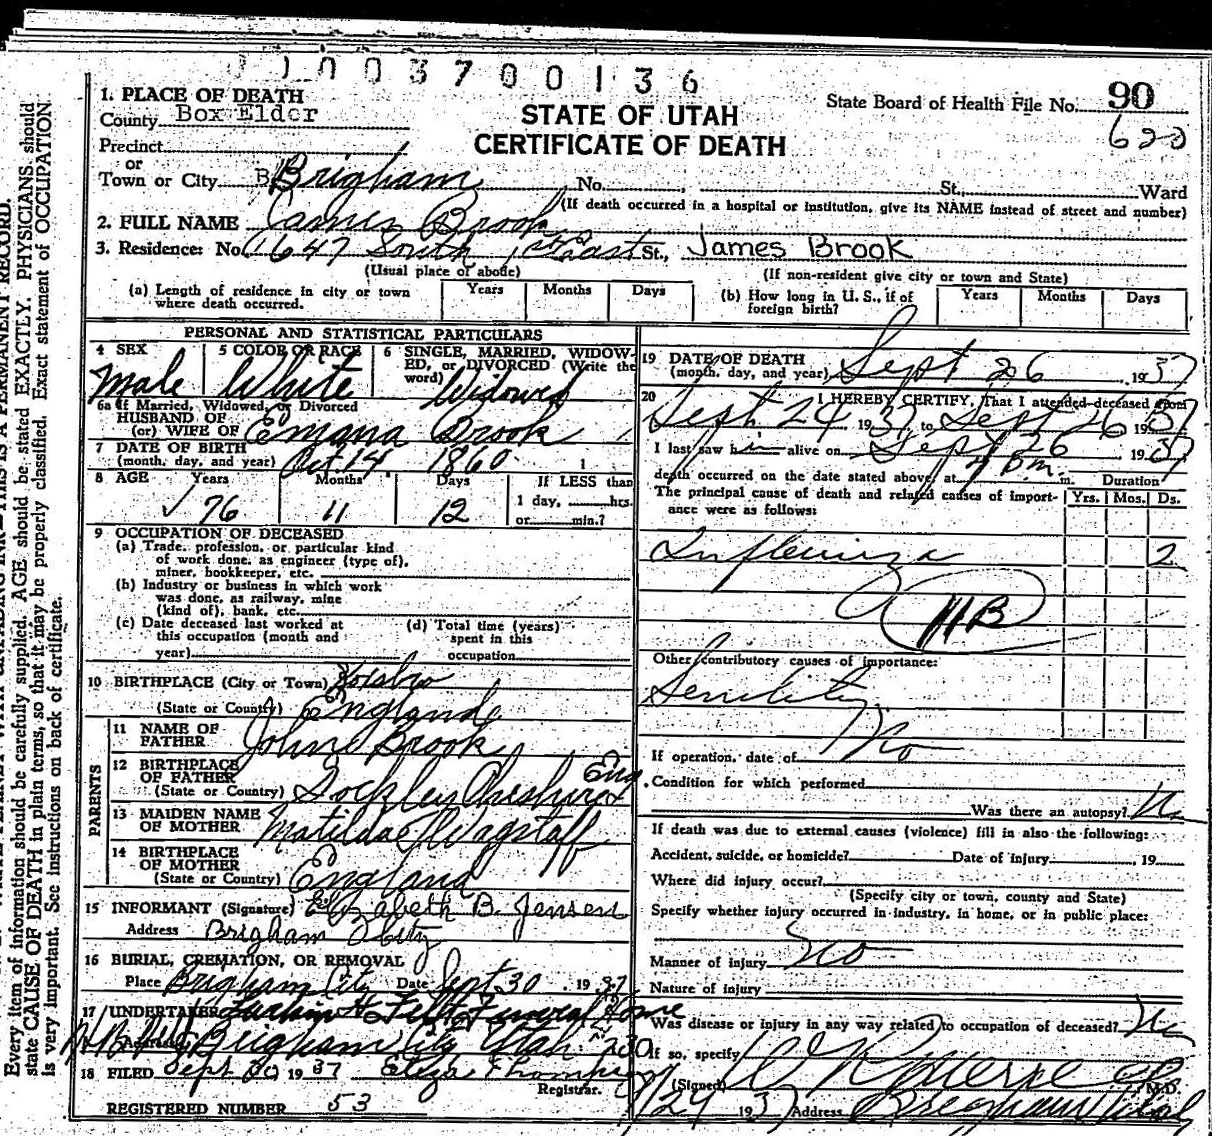 0 0 3 7 0 0 1 3 6
1. PLACE OF DEATH
County Box Elder
STATE OF UTAH
CERTIFICATE OF DEATH
State Board of Health File No. 90
620
Precinct
or
Town or City B Brigham No. St. Ward
(If death occurred in a hospital or institution, give its NAME instead of street and number)
2. FULL NAME James Brook
3. Residence: No. 647 South 1st East St., James Brook
(Usual place of abode) (If non-resident give city or town and State)
(a) Length of residence in city or town where death occurred. Years Months Days
(b) How long in U. S., if of foreign birth? Years Months Days
PERSONAL AND STATISTICAL PARTICULARS
4 SEX Male
5 COLOR OR RACE White
6 SINGLE, MARRIED, WIDOWED, or DIVORCED (Write the word) Widowed
6a If Married, Widowed, or Divorced
HUSBAND OF
(or) WIFE OF Emana Brook
7 DATE OF BIRTH
(month, day, and year) Oct 14 1860
8 AGE Years Months Days If LESS than
76 11 12 1 day, hrs.
or min.?
9 OCCUPATION OF DECEASED
(a) Trade, profession, or particular kind
of work done, as engineer (type of),
miner, bookkeeper, etc.
(b) Industry or business in which work
was done, as railway, mine
(kind of), bank, etc.
(c) Date deceased last worked at
this occupation (month and
year)
(d) Total time (years)
spent in this
occupation
10 BIRTHPLACE (City or Town)
(State or Country) England
11 NAME OF
FATHER John Brook
12 BIRTHPLACE
OF FATHER
(State or Country) Cheshire Eng
13 MAIDEN NAME
OF MOTHER Matilda Wagstaff
14 BIRTHPLACE
OF MOTHER
(State or Country) England
15 INFORMANT (Signature) Elizabeth B. Jensen
Address Brigham City
16 BURIAL, CREMATION, OR REMOVAL
Place Brigham City Date Sept 30 1937
17 UNDERTAKER Felt Funeral Home
Address Brigham City Utah 230
18 FILED Sept 30 1937 Eliza Thompson
Registrar.
REGISTERED NUMBER 53
19 DATE OF DEATH
(month, day, and year) Sept 26 1937
20 I HEREBY CERTIFY, That I attended deceased from
Sept 24 1937, to Sept 26 1937
I last saw him alive on Sept 26 1937
death occurred on the date stated above, at 4 P.m. m.
Duration
The principal cause of death and related causes of importance were as follows: Yrs. Mos. Ds.
Influenza 2
11B
Other contributory causes of importance:
Senility
If operation, date of No
Condition for which performed
Was there an autopsy? No
If death was due to external causes (violence) fill in also the following:
Accident, suicide, or homicide? Date of injury , 19
Where did injury occur?
(Specify city or town, county and State)
Specify whether injury occurred in industry, in home, or in public place:
Manner of injury No
Nature of injury
Was disease or injury in any way related to occupation of deceased? No
If so, specify
(Signed) M.D.
24 1937 Address Brigham Utah
PARENTS
Every item of information should be carefully supplied. AGE should be stated EXACTLY. PHYSICIANS should
state CAUSE OF DEATH in plain terms, so that it may be properly classified. Exact statement of OCCUPATION
is very important. See instructions on back of certificate.